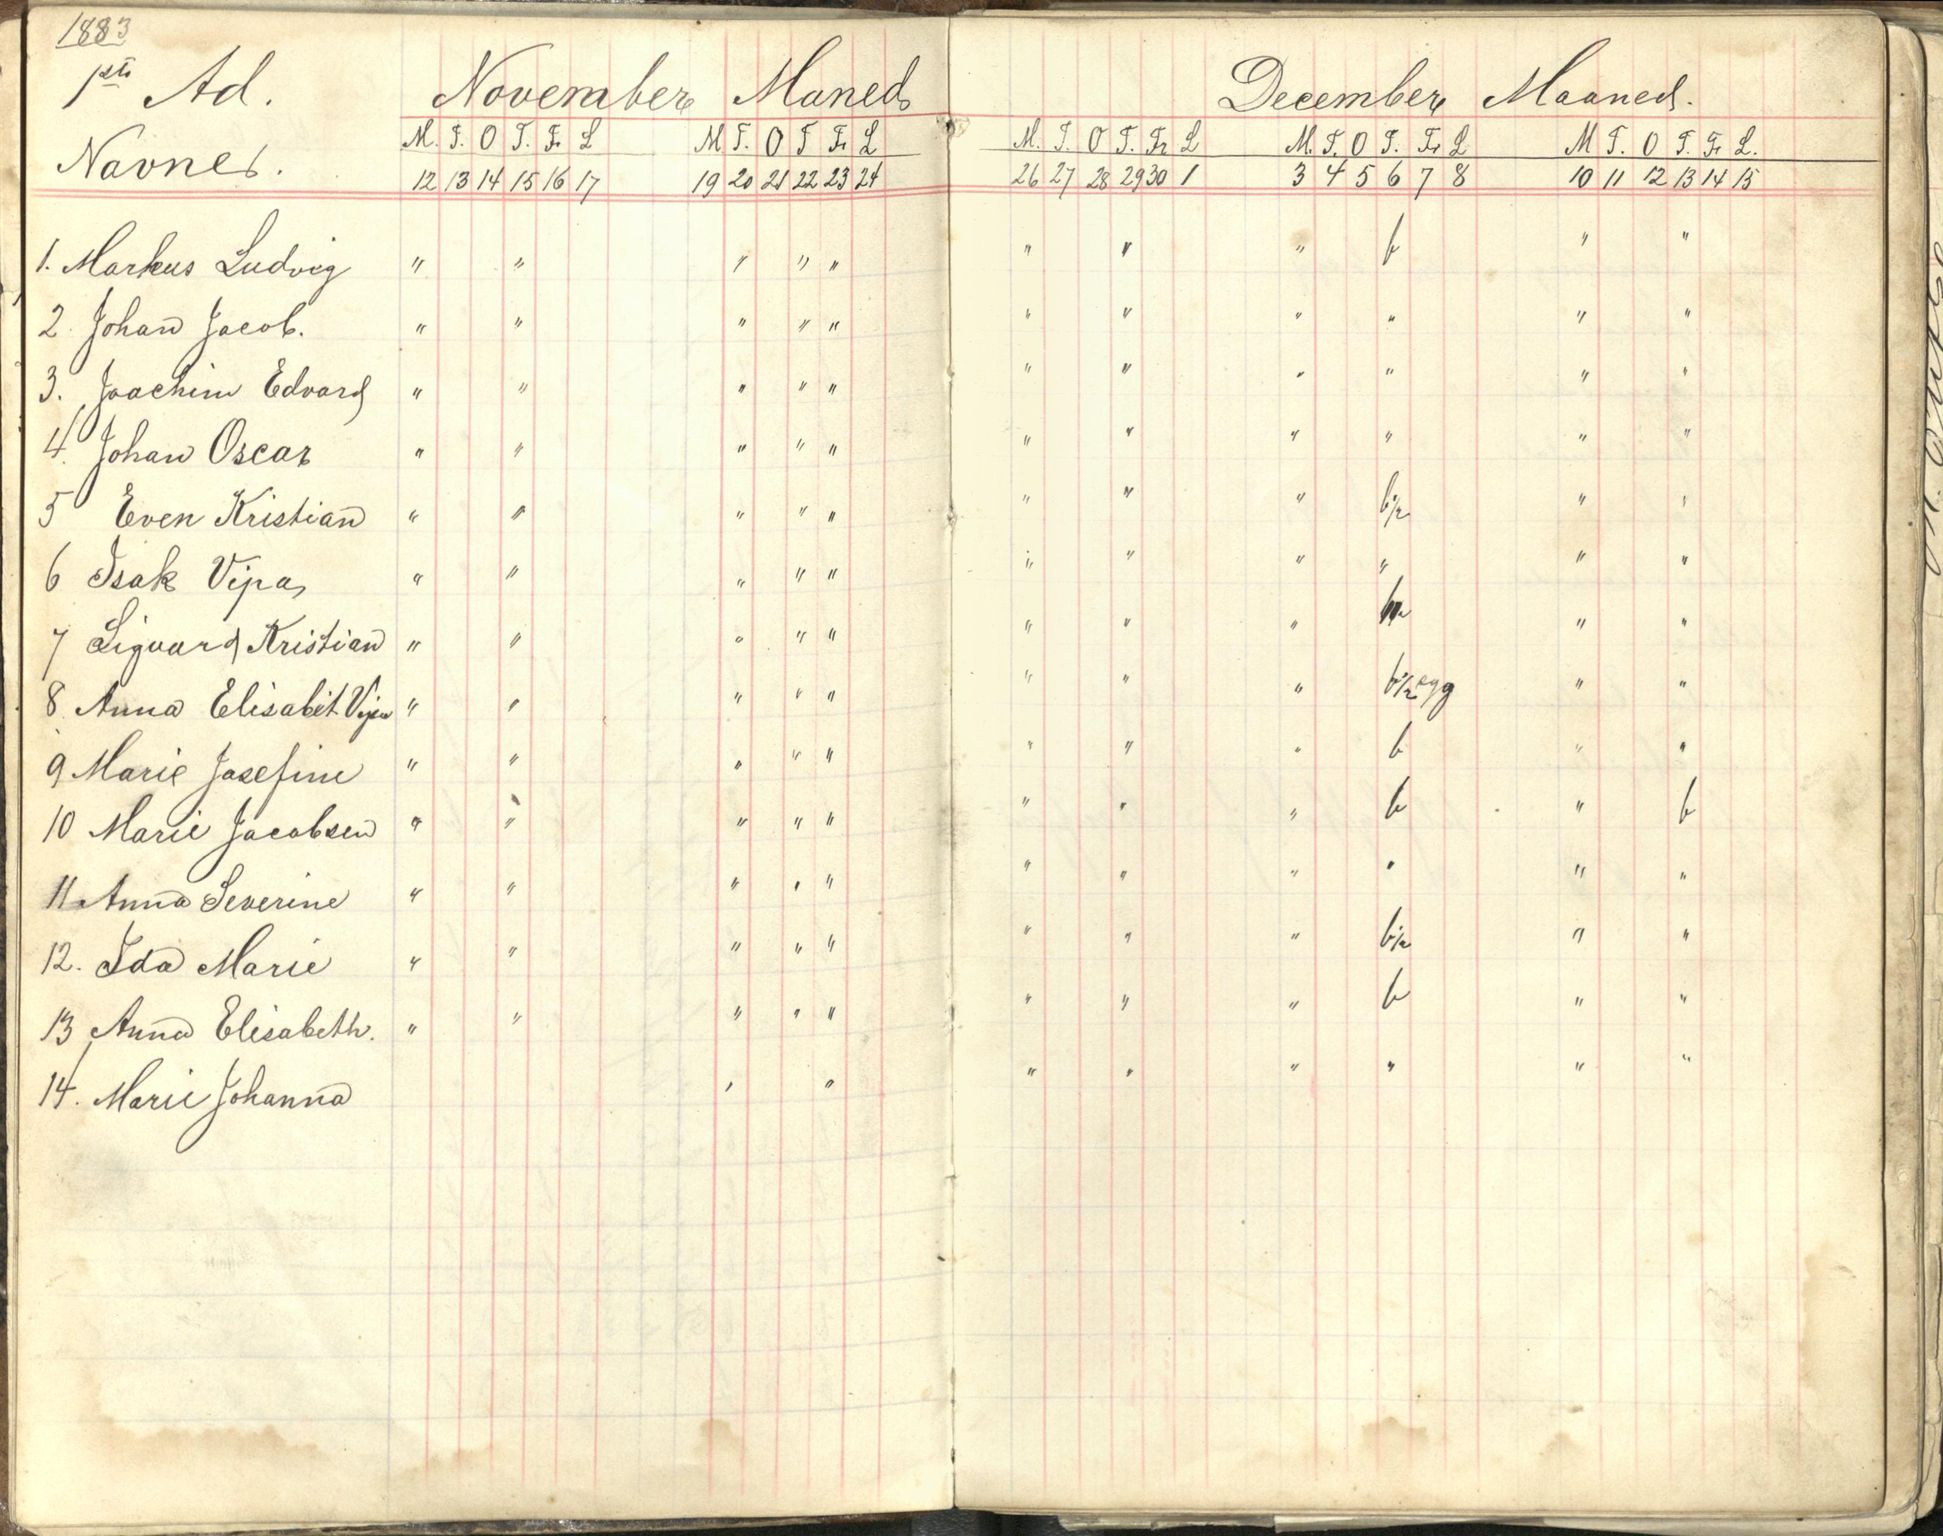 1883
1ste Ad. November Maned December Maaned.
M. T. O T. Fr L M T. O T Fr L M. T. O T. Fr L M. T. O T. Fr L M T. O T. Fr L.
Navner.
12 13 14 15 16 17 19 20 21 22 23 24 26 27 28 29 30 1 3 4 5 6 7 8 10 11 12 13 14 15
1. Markus Ludvig " " " " " " " " b " "
2. Johan Jacob. " " " " " " " " " " "
3. Joachim Edvard " " " " " " " " " " "
4. Johan Oscar " " " " " " " " " " "
5 Even Kristian " " " " " " " " b½ " "
6 Isak Vipa " " " " " " " " " " "
7 Siguard Kristian " " " " " " " " " "
8 Anna Elisabet Vipa " " " " " " " " b½ " "
9 Marie Josefine " " " " " " " " b " "
10 Marie Jacobsen " " " " " " " " b " b
11 Anna Severine " " " " " " " " " " "
12. Ida Marie " " " " " " " " b½ " "
13 Anna Elisabeth. " " " " " " " " b " "
14. Marie Johanna " " " " " " " "